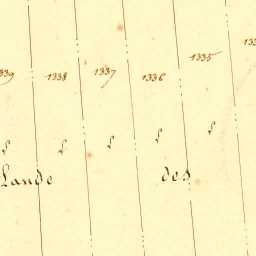 1338 1337 1336 1335
L L L L L
Lande des